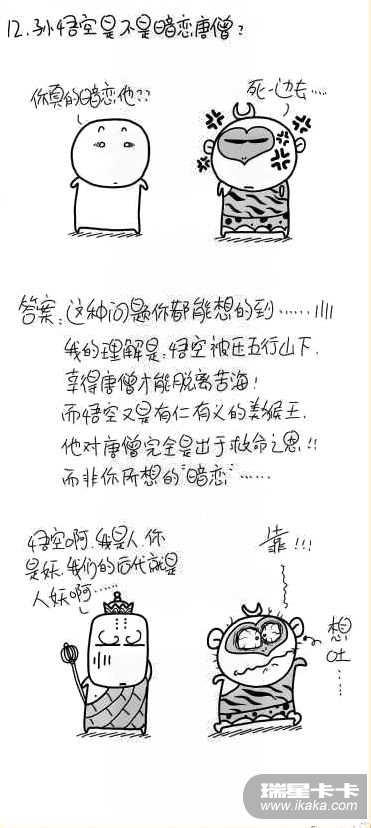 12.孙悟空是不是暗恋唐僧?
你真的暗恋他??
死一边去....
答案:这种问题你都能想的到......
我的理解是:悟空被压五行山下.
幸得唐僧才能脱离苦海!
而悟空又是有仁有义的美猴王.
他对唐僧完全是出于救命之恩!!
而非你所想的"暗恋"......
悟空啊.我是人.你
是妖.我们的后代就是
人妖啊......
靠!!!
想
吐
....
瑞星卡卡
www.ikaka.com